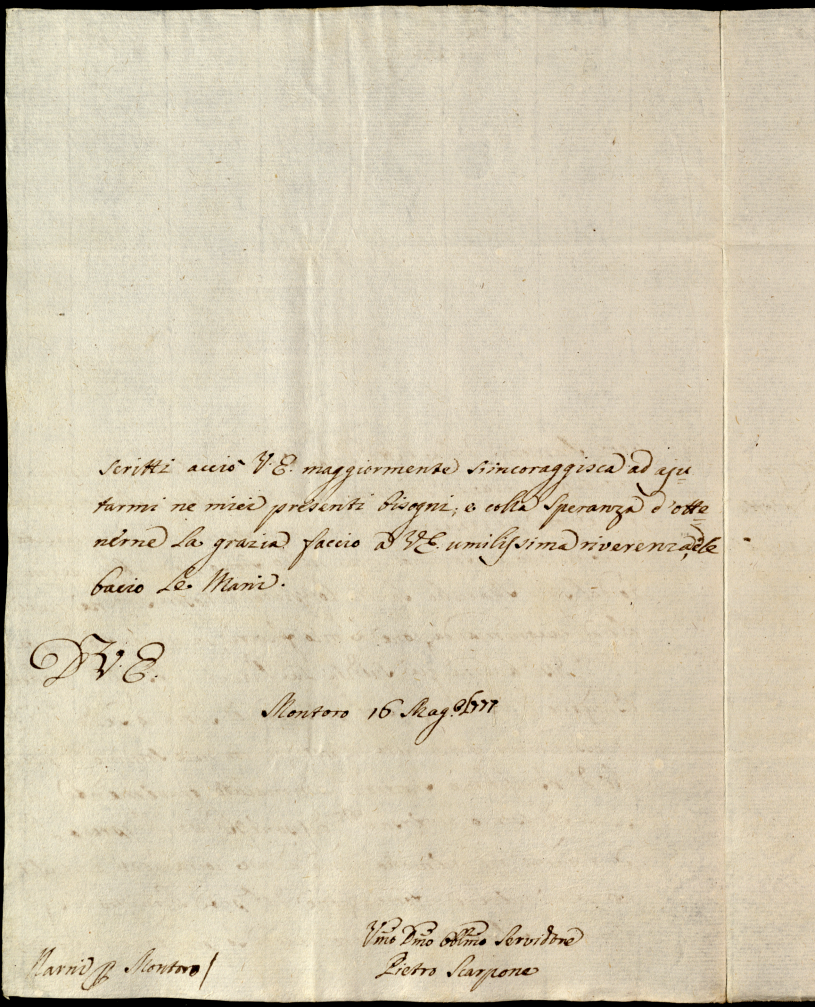 scritti acciò V.E. maggiormente s'incoraggisca ad aju
tarmi ne miei presenti bisogni, e colla speranza d'otte
nerne la grazia faccio a V.E. umilissima riverenza, e le
bacio le Mani.
D V. E.
Montoro 16 Mag.º 1777
Vmo Dmo Obblmo Servidore
Pietro Scarpone
Narni p Montoro /